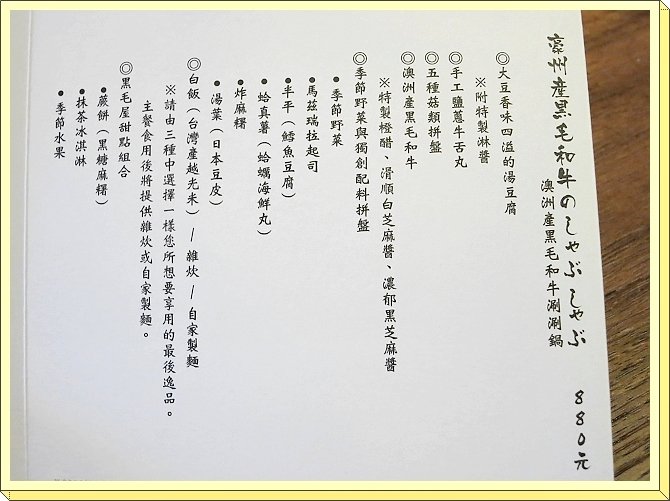 豪州産黒毛和牛のしゃぶしゃぶ 880元
澳洲產黑毛和牛涮涮鍋
◎大豆香味四溢的湯豆腐
※附特製淋醬
◎手工鹽蔥牛舌丸
◎五種菇類拼盤
◎澳洲產黑毛和牛
※特製橙醋、滑順白芝麻醬、濃郁黑芝麻醬
◎季節野菜與獨創配料拼盤
●季節野菜
●馬茲瑞拉起司
●半平(鱈魚豆腐)
●蛤真薯(蛤蠣海鮮丸)
●炸麻糬
●湯葉(日本豆皮)
◎白飯(台灣產越光米)/雜炊/自家製麵
※請由三種中選擇一樣您所想要享用的最後逸品。
主餐食用後將提供雜炊或自家製麵。
◎黑毛屋甜點組合
●蕨餅(黑糖麻糬)
●抹茶冰淇淋
●季節水果